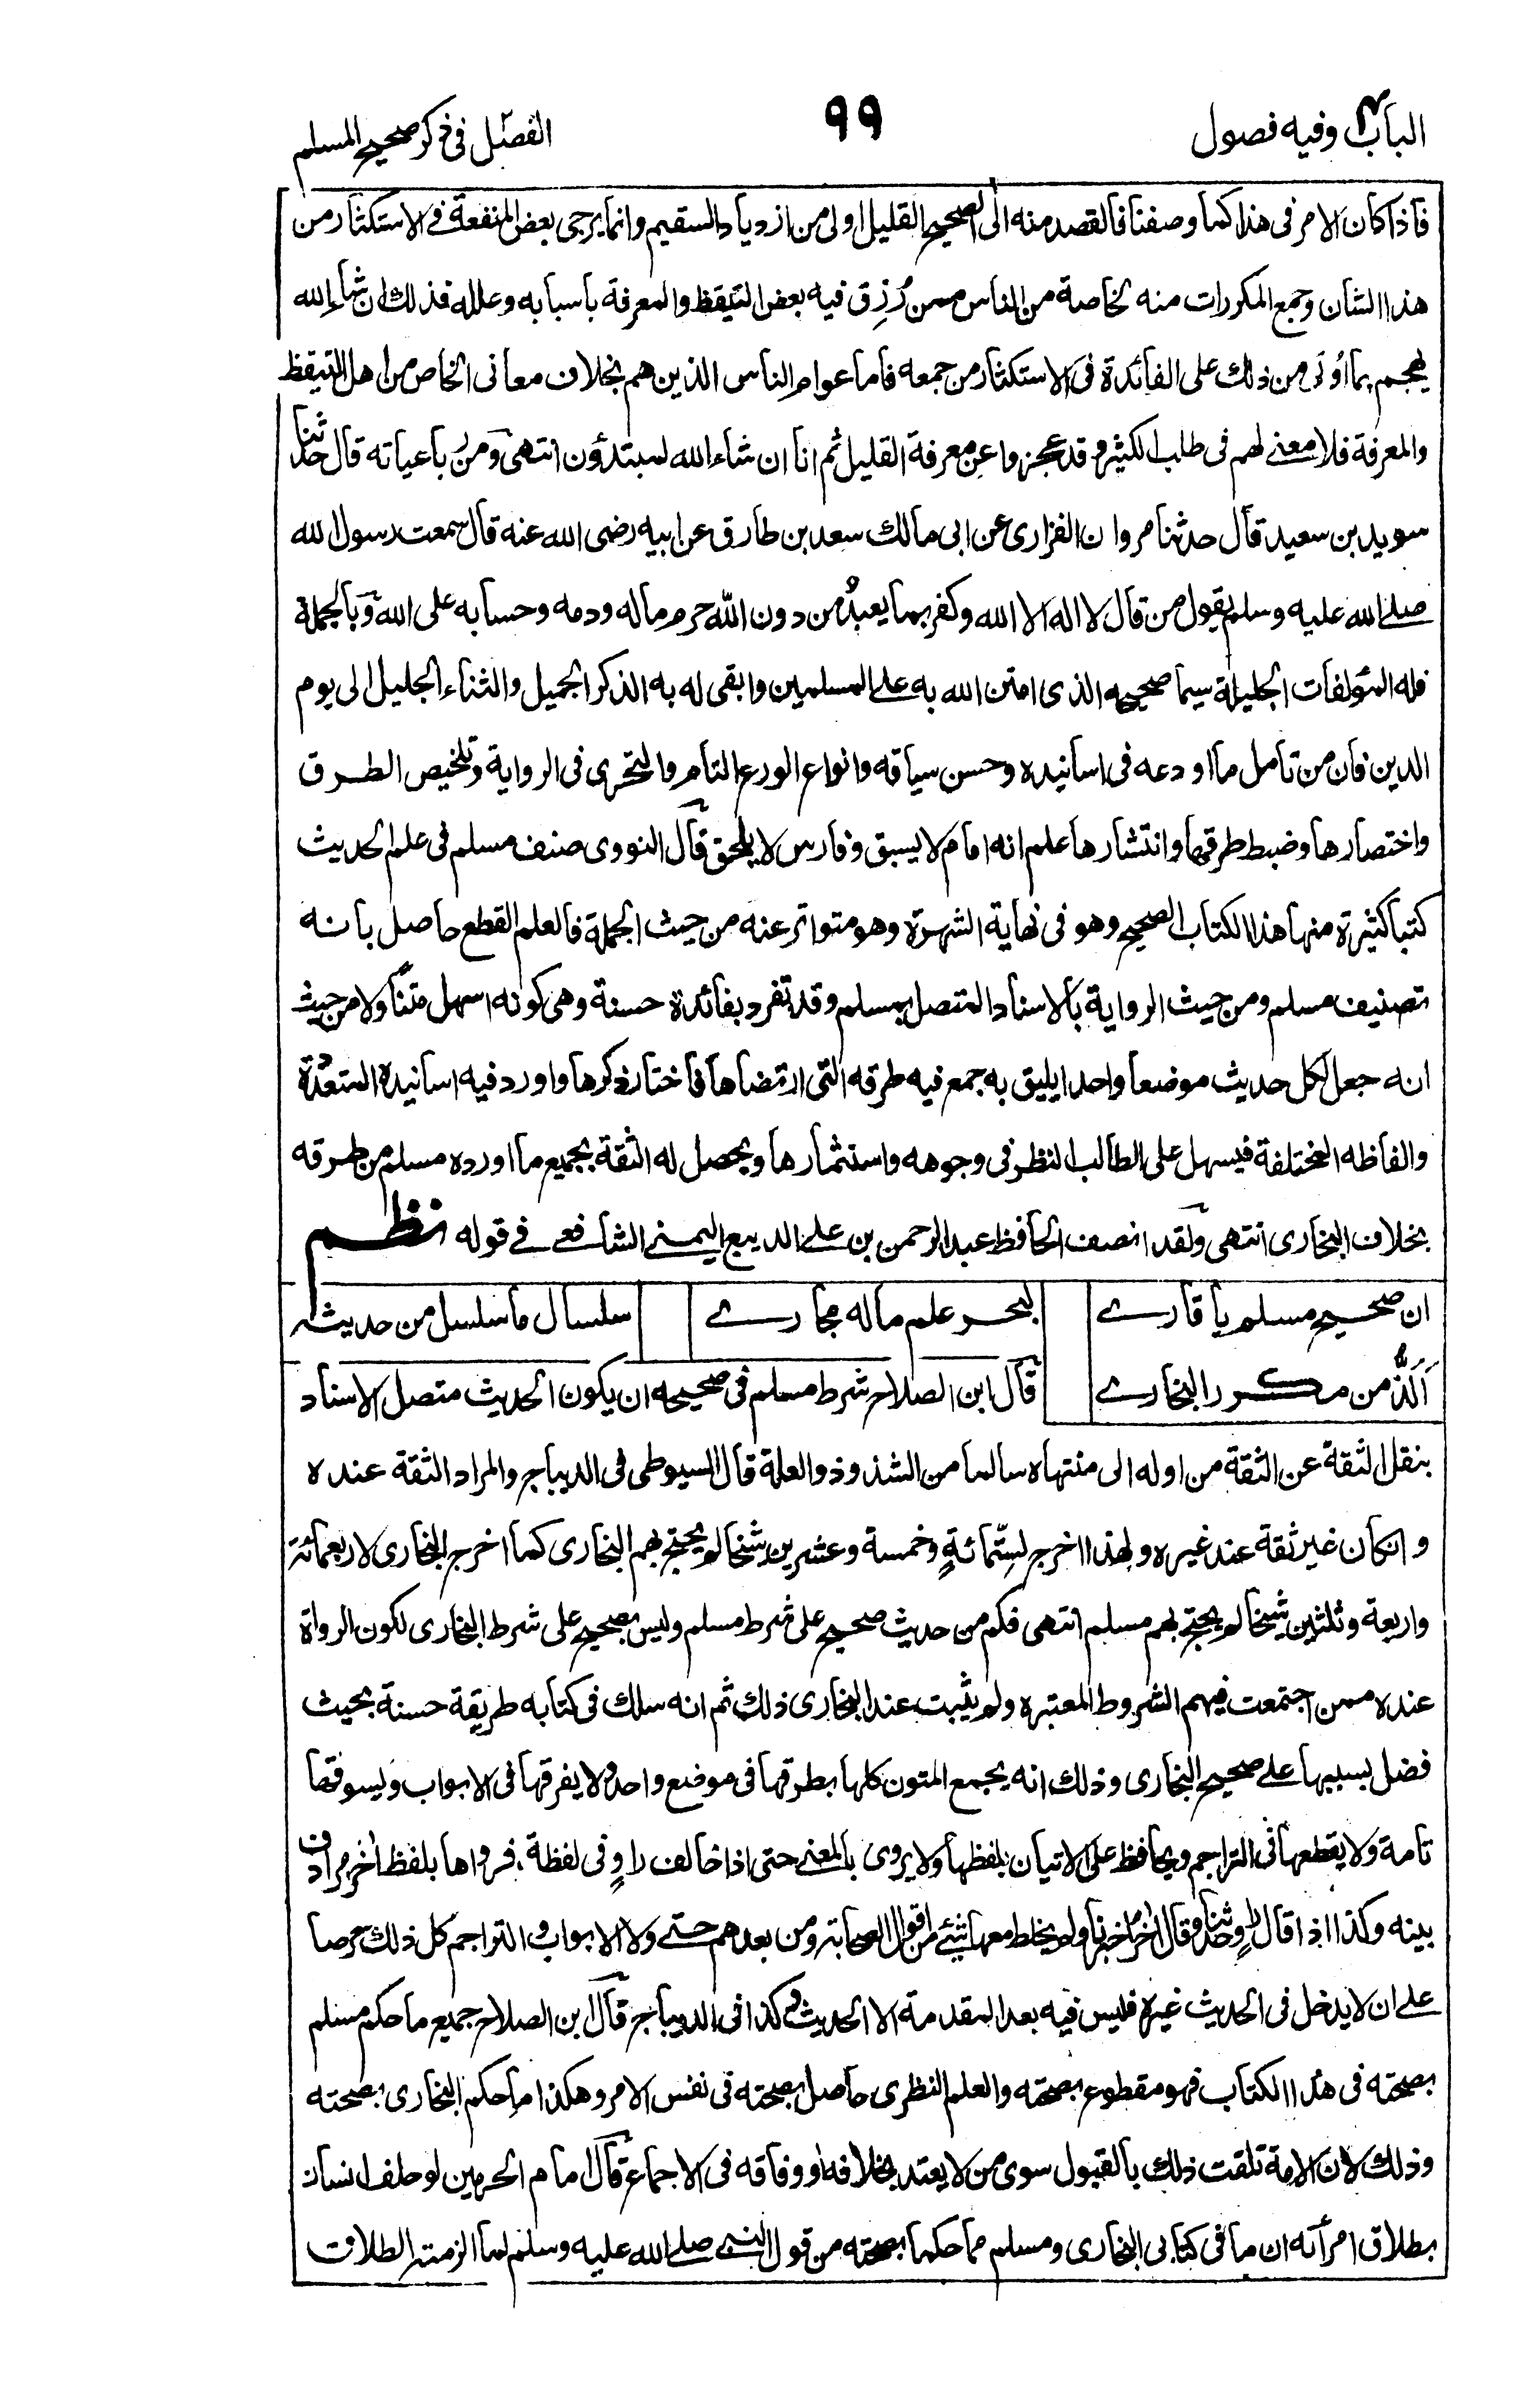 الباب٤ وفيه فصول
٩٩
الفصل٢ في ذكر صحيح المسلم
فاذا كان الامر في هذا كما وصفنا فالقصد منه الى الصحيح القليل اولى من ازدياد السقيم وانما يرجى بعض المنفعة في الاستكثار من
هذا الشان وجمع المكررات منه لخاصة من الناس ممن رُزِق فيه بعض التيقظ والمعرفة باسبابه وعلله فذلك ان شاء الله
يهجم بما اوتى من ذلك على الفائدة في الاستكثار من جمعه فاما عوام الناس الذين هم بخلاف معانى الخاص من اهل التيقظ
والمعرفة فلا معنى لهم في طلب الكثير وقد عجزوا عن معرفة القليل ثم انا ان شاء الله لمبتدؤن انتهى ومن رباعياته قال حدثنا
سويد بن سعيد قال حدثنا مروان الفزارى عن ابى مالك سعد بن طارق عن ابيه رضى الله عنه قال سمعت رسول الله
صلے الله عليه وسلم يقول من قال لا اله الا الله وكفر بما يعبدُ من دون الله حرم ماله ودمه وحسابه على الله وبالجملة
فله المؤلفات الجليلة سيما صحيحه الذى امتن الله به علے المسلمين وابقى له به الذكر الجميل والثناء الجليل الى يوم
الدين فان من تامل ما اودعه فى اسانيده وحسن سياقه وانواع الورع التام والتحرى فى الرواية وتلخيص الطرق
واختصارها وضبط طرقها وانتشارها علم انه امام لا يسبق وفارس لا يلحق قال النووى صنف مسلم فى علم الحديث
كتبا كثيرة منها هذا الكتاب الصحيح وهو فى نهاية الشهرة وهو متواتر عنه من حيث الجملة فالعلم القطع حاصل بانه
تصنيف مسلم ومن حيث الرواية بالاسناد المتصل بمسلم وقد تفرد بفائدة حسنة وهى كونه اسهل متناولا من حيث
انه جعل لكل حديث موضعا واحدا يليق به جمع فيه طرقه التى ارتضاها فاختار ذكرها واورد فيه اسانيده المتعددة
والفاظه المختلفة فيسهل على الطالب النظر فى وجوهه واستثمارها ويحصل له الثقة بجميع ما اورده مسلم من طرقه
بخلاف البخارى انتهى ولقد انصف الحافظ عبد الرحمن بن علے الديبع اليمنے الشافعے فے قوله نظم
ان صحيح مسلم يا قارے لبحر علم ما له مجارے سلسال ما سلسل من حديثه
اَلَذُّ من مكرر البخارے قال ابن الصلاح شرط مسلم فى صحيحه ان يكون الحديث متصل الاسناد
بنقل الثقة عن الثقة من اوله الى منتهاه سالما من الشذوذ والعلة قال السيوطى فى الديباج والمراد الثقة عنده
وانكان غير ثقة عند غيره ولهذا اخرج لستمائةٍ وخمسة وعشرين شخا لم يحتج بهم البخارى كما اخرج البخارى لاربعمائة
واربعة وثلثين شيخا لم يحتج بهم مسلم انتهى فكم من حديث صحيح على شرط مسلم وليس بصحيح على شرط البخارى لكون الرواة
عنده ممن اجتمعت فيهم الشروط المعتبرة ولم يثبت عند البخارى ذلك ثم انه سلك فى كتابه طريقة حسنة بحيث
فضل بسببها علے صحيح البخارى وذلك انه يجمع المتون كلها بطرقها فى موضع واحد ولا يفرقها فى الابواب ويسوقها
تامة ولا يقطعها فى التراجم ويحافظ على الاتيان بلفظها ولا يروى بالمعنے حتى اذا خالف راوٍ فى لفظة فرواها بلفظ اخر مرادف
بينه وكذا اذا قال راوٍ حدثنا وقال اخر اخبرنا ولم يخلط معها شئے من اقوال الصحابة ومن بعدهم حتے ولا الابواب والتراجم كل ذلك حرصا
علے ان لا يدخل فى الحديث غيره فليس فيه بعد المقدمة الا الحديث كذا فى الديباج قال ابن الصلاح جميع ما حكم مسلم
بصحته فى هذا الكتاب فهو مقطوع بصحته والعلم النظرى حاصل بصحته فى نفس الامر وهكذا ما حكم البخارى بصحته
وذلك لان الامة تلقت ذلك بالقبول سوى من لا يعتد بخلافه او وفاقه فى الاجماع قال امام الحرمين لو حلف انسان
بطلاق امرأته ان ما فى كتابى البخارى ومسلم مما حكما بصحته من قول النبے صلے الله عليه وسلم لما الزمته الطلاق